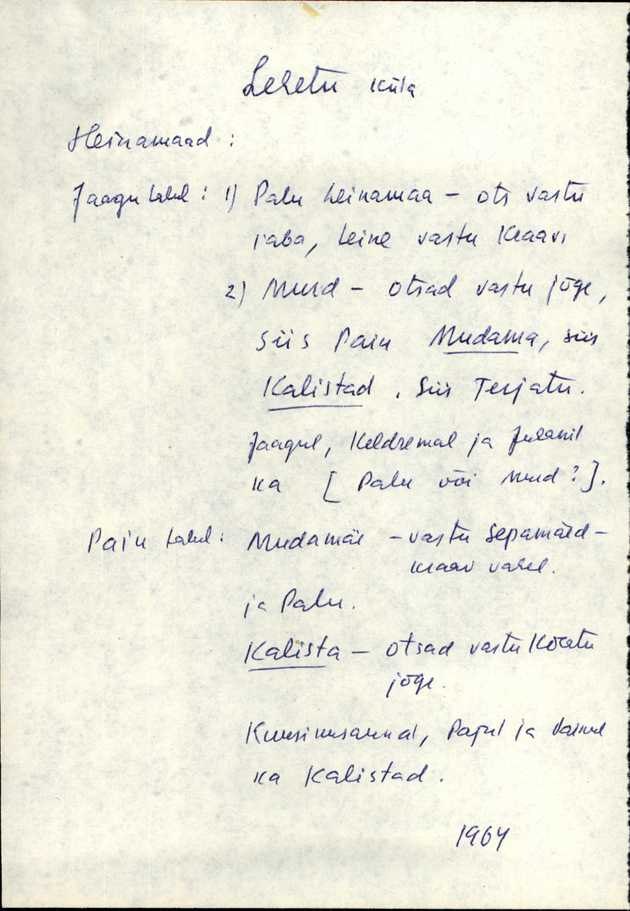 Leretu küla
Heinamaad :
Jaagu talul : 1) Palu heinamaa – ots vastu
raba, teine vastu kraavi
2) Murd – otsad vastu jõge,
siis Pain Mudama, siis
Kalistad . Siis Terjatu.
Jaagul, Keldremal ja
ka [ Palu või Murd ? ].
Pain talul : Mudamäe – vastu Sepamäed –
kraav vahel.
ja Palu.
Kalista – otsad vastu
jõge.
Pajul ja
ka Kalistad .
1964